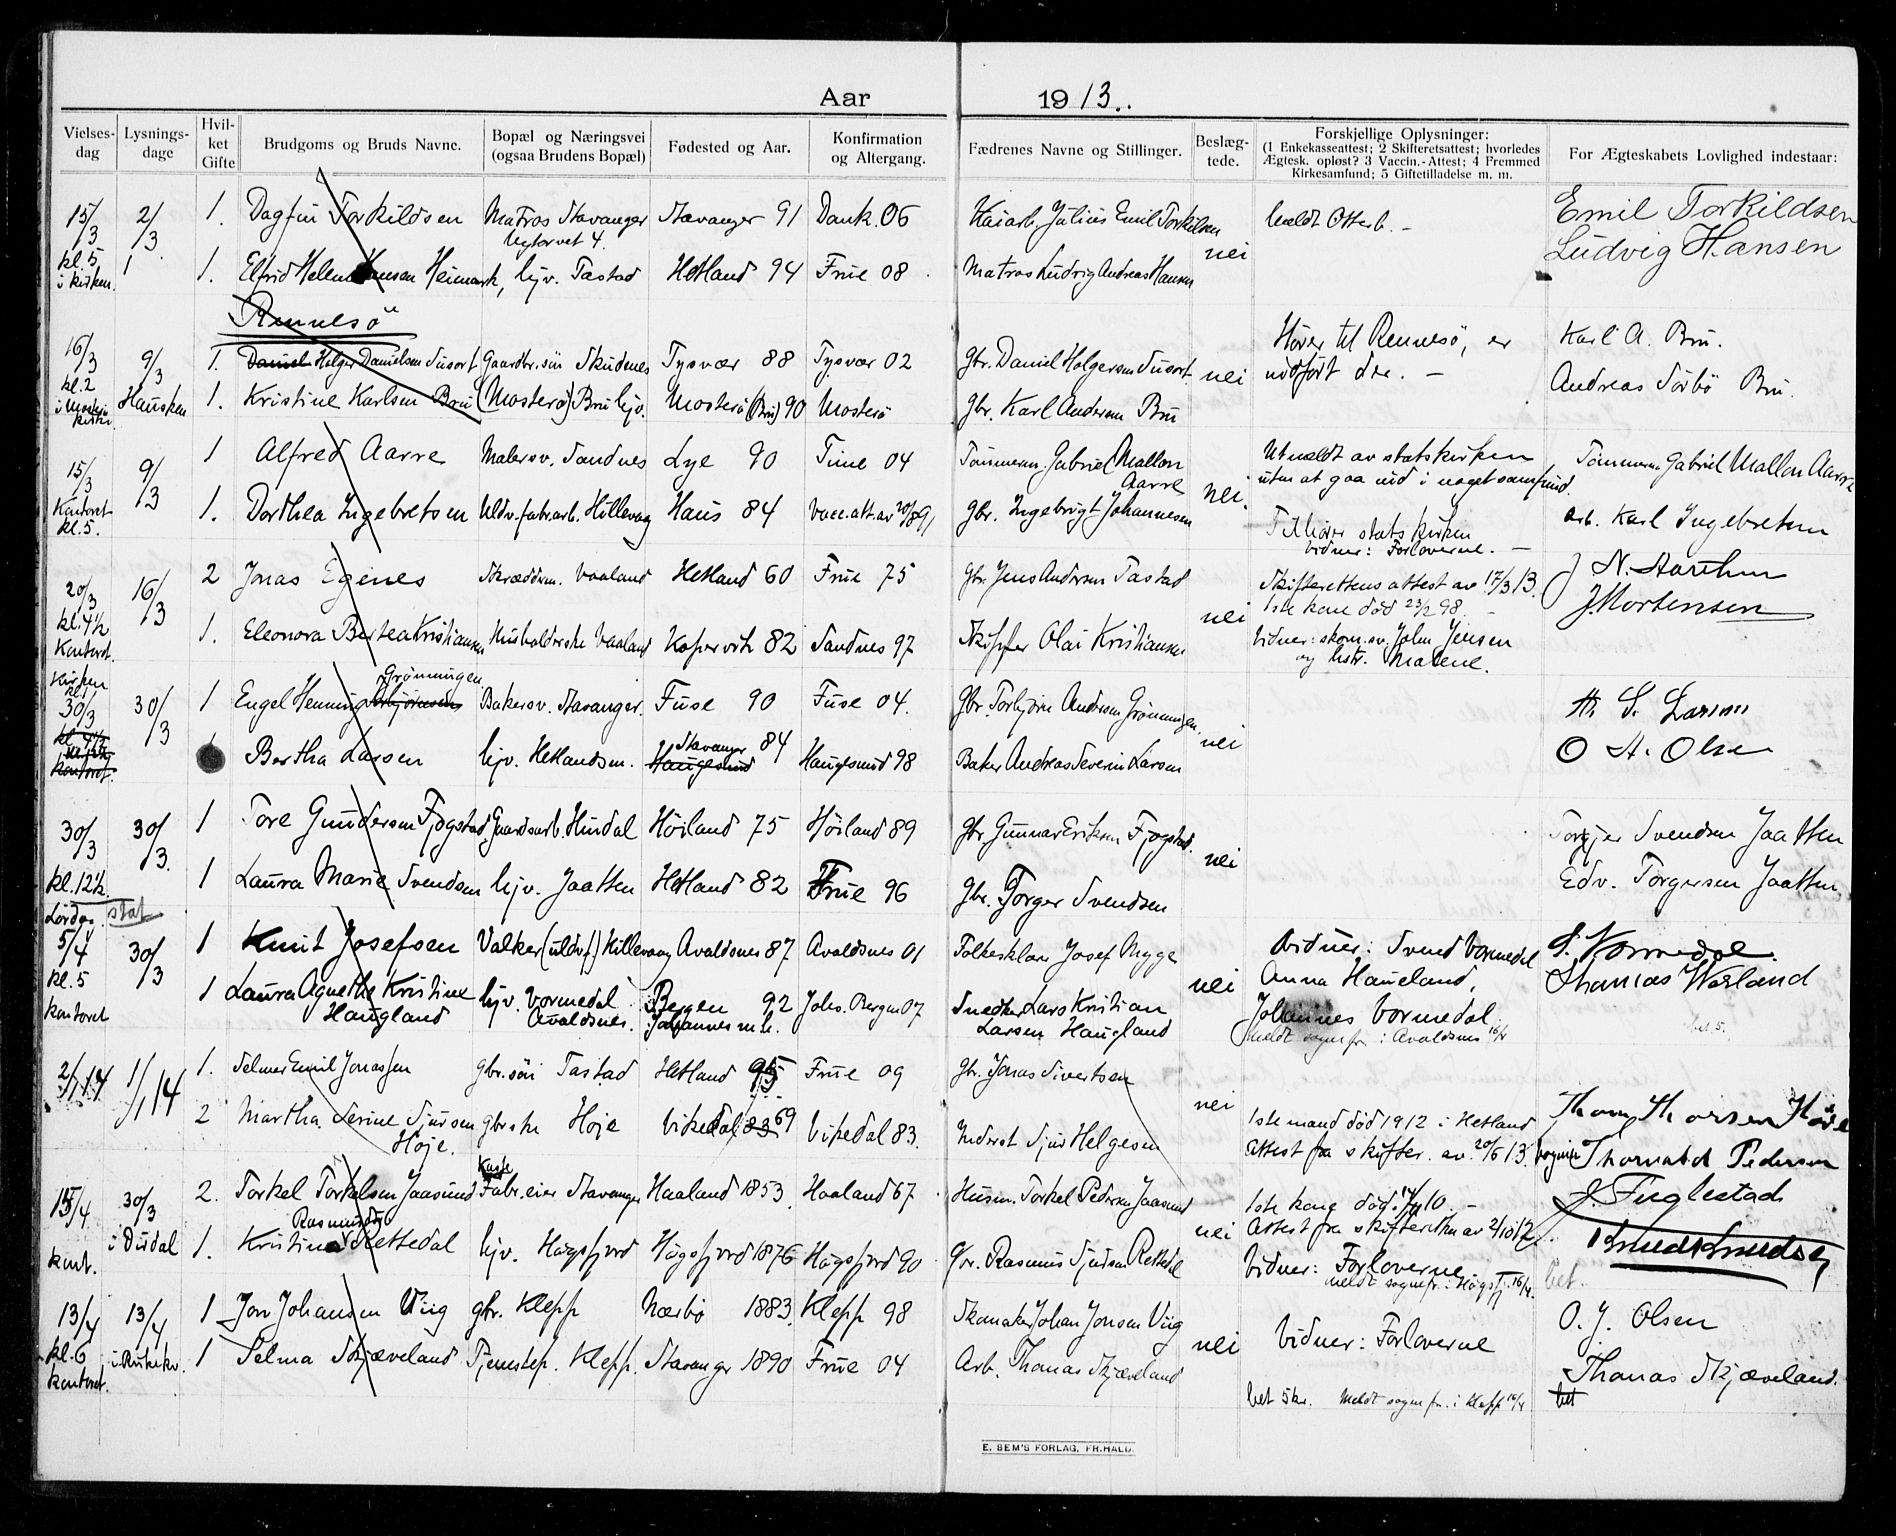 Aar 1913.
Vielses-dag | Lysnings-dage | Hvil-ket Gifte | Brudgoms og Bruds Navne. | Bopæl og Næringsvei (ogsaa Brudens Bopæl) | Fødested og Aar. | Konfirmation og Altergang. | Fædrenes Navne og Stillinger. | Beslæg-tede. | Forskjellige Oplysninger: (1 Enkekasseattest; 2 Skifteretsattest; hvorledes Ægtesk. opløst? 3 Vaccin.-Attest; 4 Fremmed Kirkesamfund; 5 Giftetilladelse m. m. | For Ægteskabets Lovlighed indestaar:
15/3 2/3 1. Dagfin Torkildsen Matros Stavanger Stavanger 91 Dank. 06 Kaiarb. Julius Emil Torkilsen Emil Torkildsen
Nytorvet 4. nei
kl. 5 i kirken. 1. Elfrid Helene Hansen Heimark, hjv. Tastad Hetland 94 Frue 08 Matros Ludvig Andreas Hansen Ludvig Hansen
Rennesö
16/3 9/3 1. Daniel Holger Danielsen Susort Gaardbr. sön Skudenes Tysvær 88 Tysvær 02 gbr. Daniel Holgersen Susort nei Hörer til Rennesö, er Karl A. Bru.
kl. 2 i Mosterö kirke Hausken 1. Kristine Karlsen Bru (Mosterö) Bru hjv. Mosterö (Bru) 90 Mosterö gbr. Karl Andersen Bru indfört der. — Andreas Sörbö Bru.
15/3 9/3 1 Alfred Aarre Malersv. Sandnes Lye 90 Time 04 Tömmerm. Gabriel Mallon Aarre nei. Utmeldt av statskirken Tömmerm. Gabriel Mallon Aarre
uten at gaa ind i noget samfund.
Kontoret kl. 5. 1. Dorthea Ingebretsen Uldv. fabr.arb. Hillevaag Haus 84 Vacc. att. av 20/8 91 gbr. Ingebrigt Johannesen Tilhörer statskirken arb. Karl Ingebretsen
Vidner: Forloverne. —
20/3 16/3 2 Jonas Egenes Skræddерm. Vaaland Hetland 60 Frue 75 Gbr. Jens Andersen Tastad nei Skifterettens attest av 17/3 13.
1ste kone död 23/2 98. J. Mortensen
kl. 4½ Kontoret. 1. Eleonora Bertea Kristiansen Husholderske Vaaland Kopervik 82 Sandnes 97 Skipper Olai Kristiansen Vidner: skom.sv. John Jensen
og hstr. Malene.
Kirken kl. 1 Grönningen
30/3 30/3 1 Engel Henning Torbjörnsen Bakersv. Stavanger. Fuse 90 Fuse 04. Gbr. Torbjörn Andersen Grönningen nei Th. S. Larsen
kontoret. Bertha Larsen hjv. Hetlandsm. Stavanger Haugesund 84 Haugesund 98 Baker Andreas Severin Larsen O A. Olsen
30/3 30/3. 1 Tore Gundersen Fjogstad Gaardsarb. Hindal Höiland 75 Höiland 89 gbr. Gunnar Eriksen Fjogstad. nei Torgjer Svendsen Jaatten
kl. 12½. 1 Laura Marie Svendsen hjv. Jaatten Hetland 82 Frue 96 gbr. Torger Svendsen Edv. Torgersen Jaatten
Lördag stat
5/4 30/3 1 Knut Josefsen Valker (uldvf.) Hillevaag Avaldsnes 87 Avaldsnes 01 Folkeskl. Josef Mygge nei Vidner: Svend Vormedal S. Vormedal.
kl. 5 kontoret 1 Laura Agnethe Kristine Haugland hjv. Vormedal Avaldsnes. Bergen 92 Johannes m.h. Johs. Bergen 07 Snedker Lars Kristian Larsen Haugland Anna Haueland, Thomas Wesland
Johannes Vormedal.
meldt sognepr. i Avaldsnes 16/4
2/1 14 1/1 14 1. Selmer Emil Jonassen gbr. sön Tastad Hetland 95 Frue 09 gbr. Jonas Sivertsen nei
2 Martha Serine Sjursen Höje. gbrske Höje Vikedal 83 69 Vikedal 83. Inderst Sjur Helgesen 1ste mand död 1912 i Hetland Thom. Thorsen Höie
Attest fra skifter. av 20/6 13. Thorvald Pedersen
15/4 30/3 2. Torkel Torkelsen Jaasund Kasse Fabr. eier Stavanger Haaland 1853. Haaland 67 Husm. Torkel Pedersen Jaasund nei 1ste kone död 14/11 10. — J. Fuglestad
kont. i Dirdal 1. Kristine Rasmusdtr. Rettedal hjv. Högsfjord Högsfjord 1876 Högsfjord 90 Gbr. Rasmus Sjursen Rettedal Attest fra skifteretten av 2/10 12. Knud Knudsen
Vidner: Forloverne
meldt sognepr. i Högsfj. 16/4. bet.
13/4 13/4 1 Jon Johansen Viig gbr. Klepp Nærbö 1883. Klepp 98 Skomaker Johan Jonsen Viig nei Vidner: Forloverne O. J. Olsen
kl. 6 kontoret. 1 Selma Skjæveland Tjenstep. Klepp. Stavanger 1890 Frue 04 Arb. Thomas Skjæveland Thomas Skjæveland.
bet 5 kr. Meldt sognepr. i Klepp 16/4 bet
E. SEM'S FORLAG, FR.HALD.